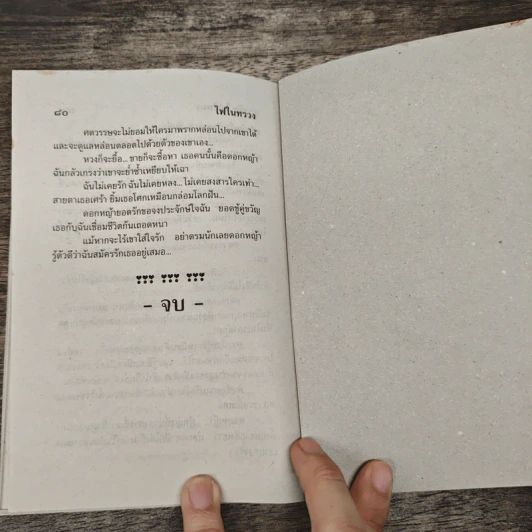 ๘๐ ไฟในทรวง
ศตวรรษจะไม่ยอมให้ใครมาพรากหล่อนไปจากเขาได้
และจะดูแลหล่อนตลอดไปด้วยตัวของเขาเอง...
หวงก็จะยื้อ... ขายก็จะซื้อหา เธอคนนั้นคือดอกหญ้า
ฉันกลัวเกรงว่าเขาจะย่ำซ้ำเหยียบให้เฉา
ฉันไม่เคยรัก ฉันไม่เคยหลง... ไม่เคยสงสารใครเท่า...
สายตาเธอเศร้า ยิ้มเธอโศกเหมือนกล่อมโลกฝัน...
ดอกหญ้ายอดรักของจงประจักษ์ใจฉัน ยอดชู้คู่ขวัญ
เธอกับฉันเชื่อมชีวิตกันเถอดหนา
แม้หากจะไร้เขาใส่ใจรัก อย่าตรมนักเลยดอกหญ้า
รู้ตัวดีว่าฉันสมัครรักเธออยู่เสมอ...
- จบ -